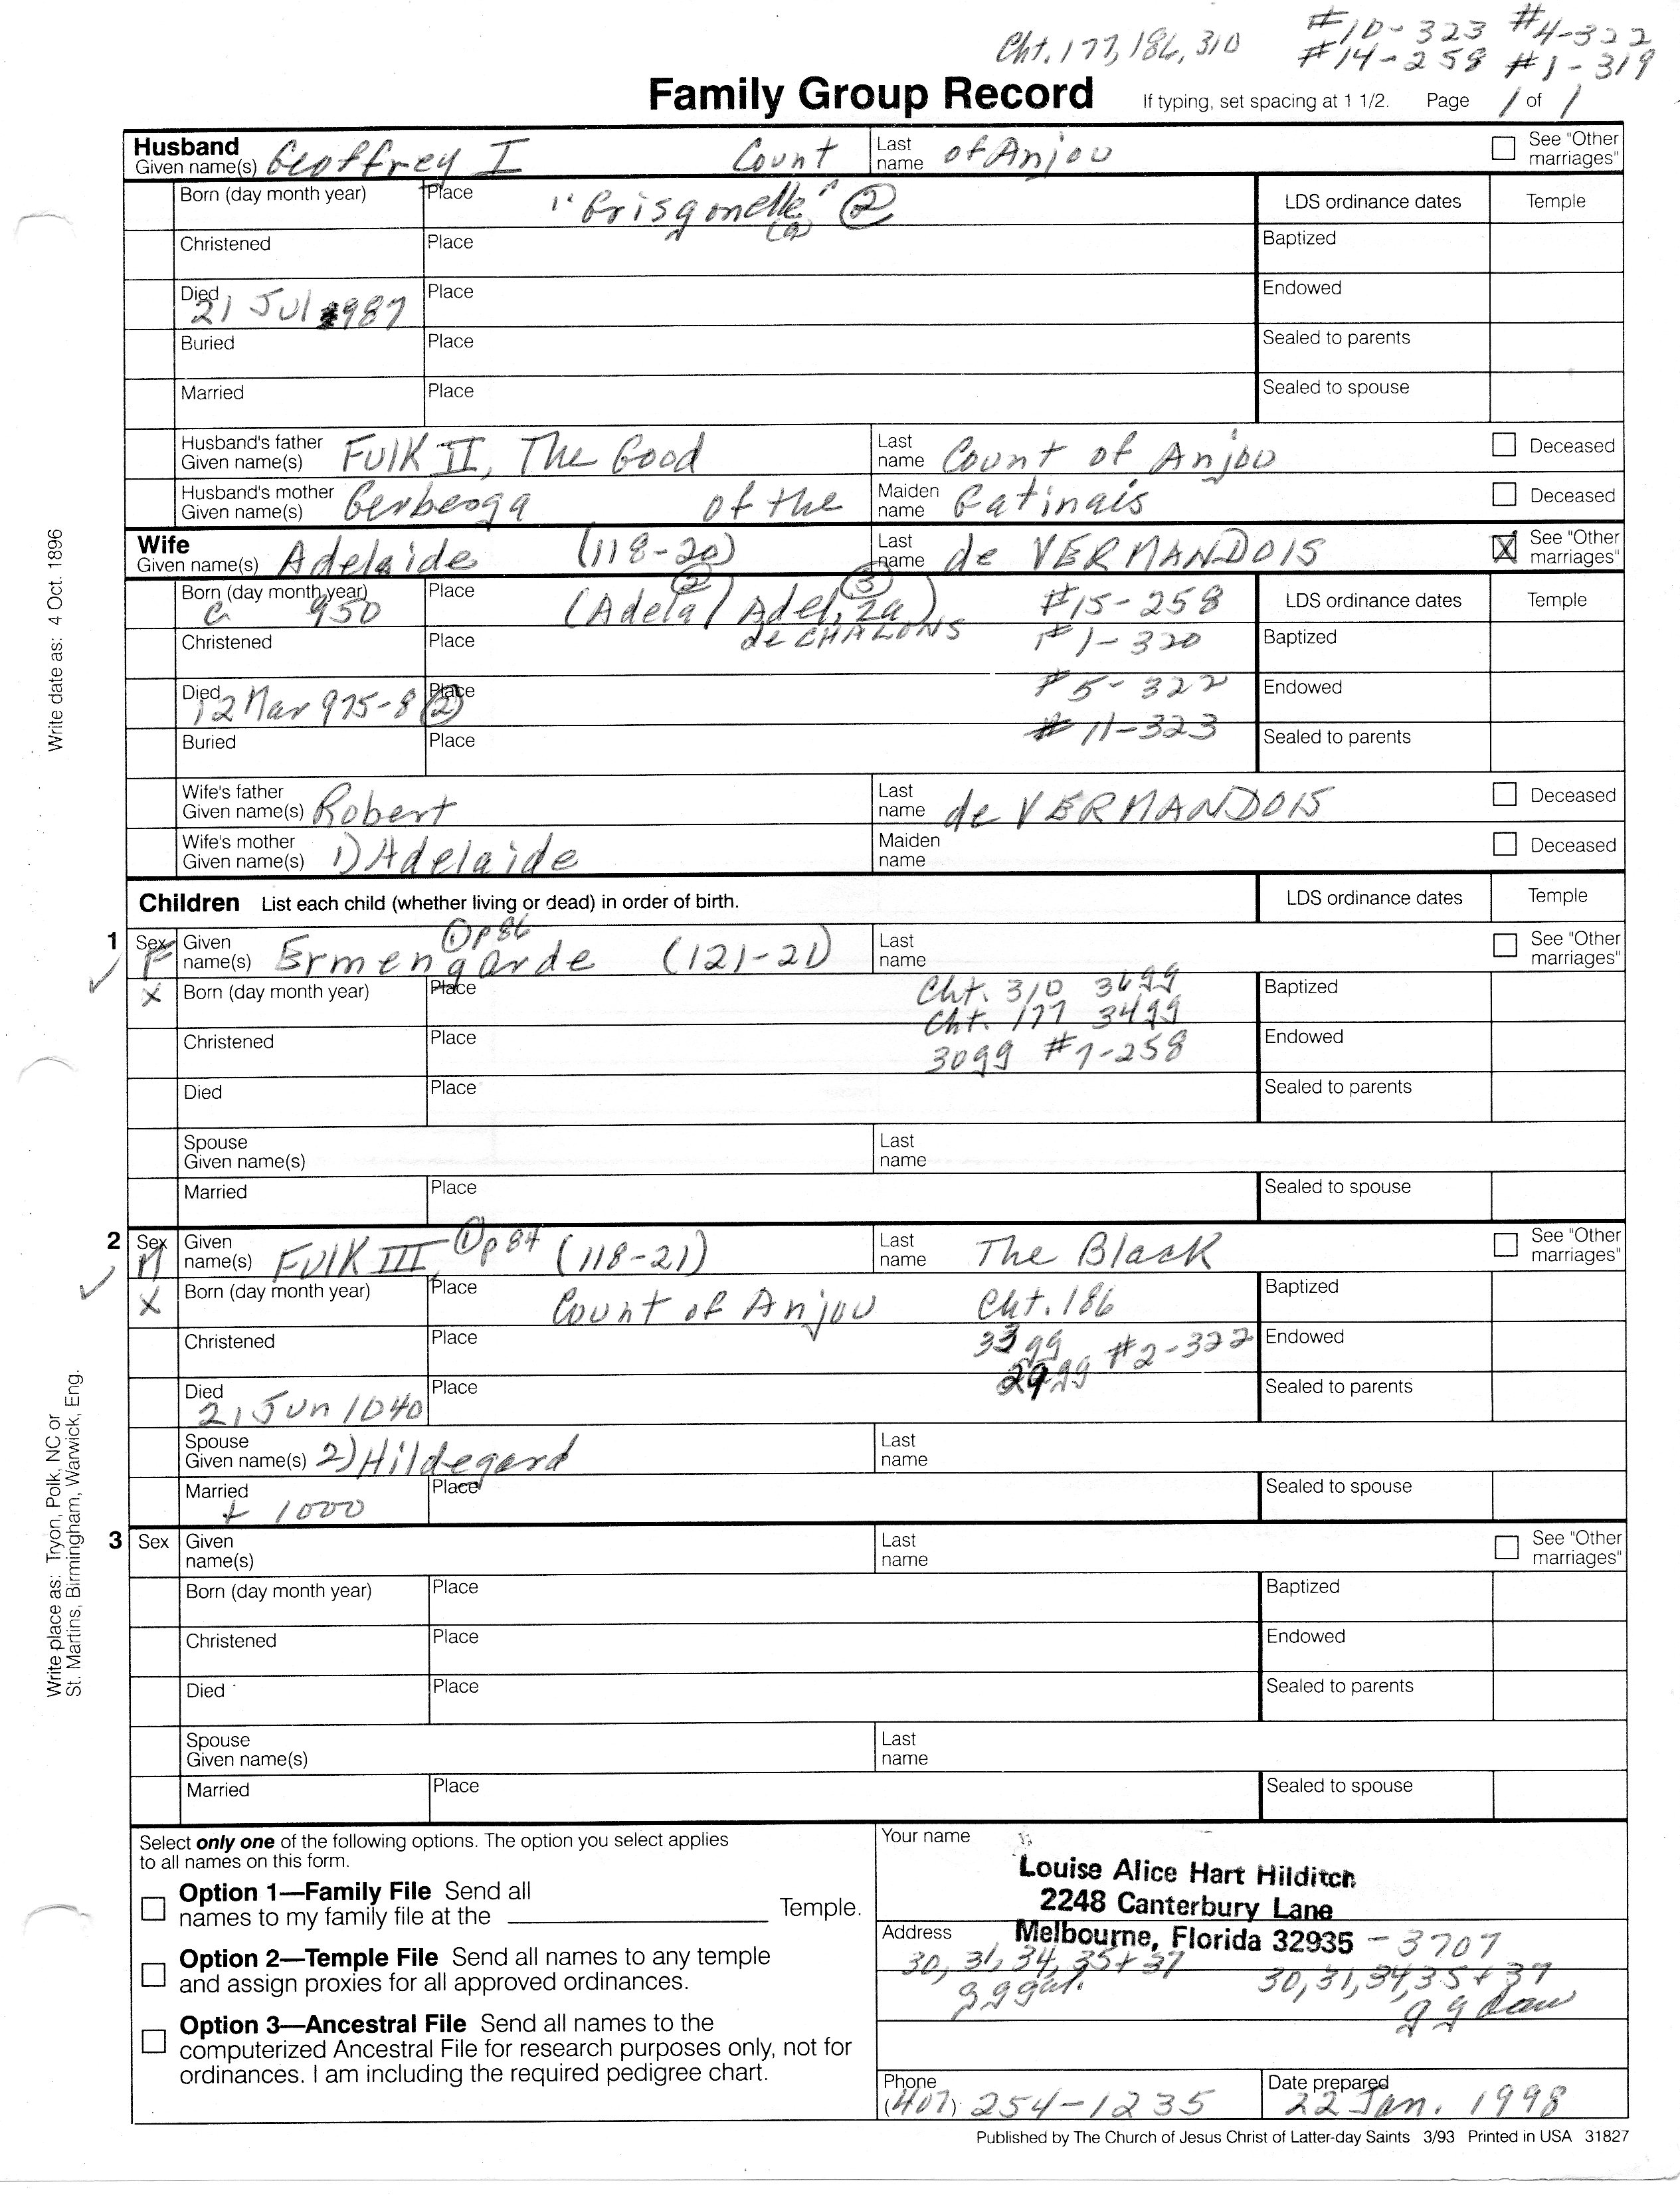 Cht. 177, 186, 310 #10-323 #4-322
#14-258 #1-319
Family Group Record If typing, set spacing at 1 1/2. Page 1 of 1
Husband
Given name(s) Geoffrey I Count Last name of Anjou See "Other marriages"
Born (day month year) Place "Grisgonelle" (a) 2 LDS ordinance dates Temple
Christened Place Baptized
Died 21 Jul 987 Place Endowed
Buried Place Sealed to parents
Married Place Sealed to spouse
Husband's father Given name(s) Fulk II, The Good Last name Count of Anjou Deceased
Husband's mother Given name(s) Gerberga of the Maiden name Gatinais Deceased
Wife
Given name(s) Adelaide (118-20) Last name de VERMANDOIS X See "Other marriages"
Born (day month year) C 950 Place (Adela 2 / Adeliza 3) #15-258 LDS ordinance dates Temple
Christened Place de CHALONS #1-320 Baptized
Died 12 Mar 975-8 2 Place #5-322 Endowed
Buried Place #11-323 Sealed to parents
Wife's father Given name(s) Robert Last name de VERMANDOIS Deceased
Wife's mother Given name(s) 1) Adelaide Maiden name Deceased
Children List each child (whether living or dead) in order of birth. LDS ordinance dates Temple
1 Sex F Given name(s) Ermengarde 1 p86 (121-21) Last name See "Other marriages"
X Born (day month year) Place Cht. 310 36gg Baptized
Cht. 177 34gg
Christened Place 30gg #7-258 Endowed
Died Place Sealed to parents
Spouse Given name(s) Last name
Married Place Sealed to spouse
2 Sex M Given name(s) Fulk III 1 p84 (118-21) Last name The Black See "Other marriages"
X Born (day month year) Place Count of Anjou Cht. 186 Baptized
Christened Place 33gg #2-322 Endowed
29gg
Died 21 Jun 1040 Place Sealed to parents
Spouse Given name(s) 2) Hildegard Last name
Married + 1000 Place Sealed to spouse
3 Sex Given name(s) Last name See "Other marriages"
Born (day month year) Place Baptized
Christened Place Endowed
Died Place Sealed to parents
Spouse Given name(s) Last name
Married Place Sealed to spouse
Select only one of the following options. The option you select applies
to all names on this form.
Option 1—Family File Send all
names to my family file at the Temple.
Option 2—Temple File Send all names to any temple
and assign proxies for all approved ordinances.
Option 3—Ancestral File Send all names to the
computerized Ancestral File for research purposes only, not for
ordinances. I am including the required pedigree chart.
Your name
Louise Alice Hart Hilditch
2248 Canterbury Lane
Address Melbourne, Florida 32935 - 3707
30, 31, 34, 35 + 37 30, 31, 34, 35 + 37
gg gg dau
Phone (407) 254-1235 Date prepared 22 Jan. 1998
Published by The Church of Jesus Christ of Latter-day Saints 3/93 Printed in USA 31827
Write date as: 4 Oct. 1896
Write place as: Tryon, Polk, NC or
St. Martins, Birmingham, Warwick, Eng.